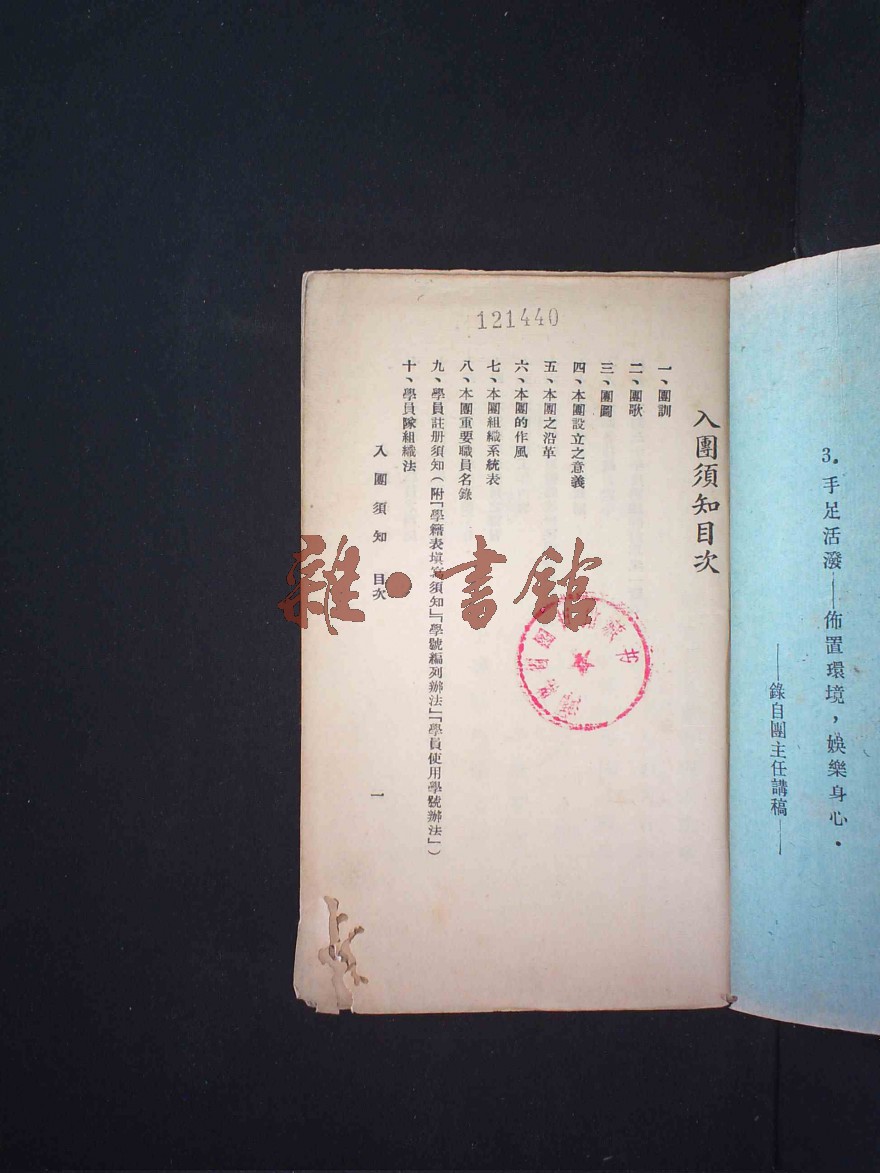 3. 手足活潑——佈置環境，娛樂身心．
——錄自團主任講稿——
121440
入團須知目次
一、團訓
二、團歌
三、團圖
四、本團設立之意義
五、本團之沿革
六、本團的作風
七、本團組織系統表
八、本團重要職員名錄
九、學員註册須知（附「學籍表填寫須知」「學號編列辦法」「學員使用學號辦法」）
十、學員隊組織法
入團須知 目次
一
雜•書館